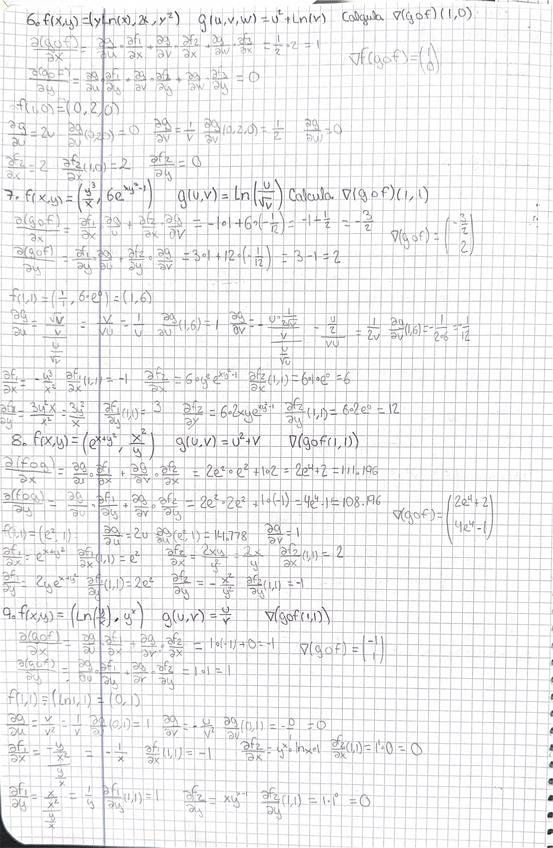 6. f(x,y)=(yLn(x), 2x, y²) g(u,v,w)=u²+Ln(v) Calcula ∇(gof)(1,0)
∂(gof)/∂x = ∂g/∂u·∂f1/∂x + ∂g/∂v·∂f2/∂x + ∂g/∂w·∂f3/∂x = 1/2·2 = 1 ∇f(gof)=(1 0)
∂(gof)/∂y = ∂g/∂u·∂f1/∂y + ∂g/∂v·∂f2/∂y + ∂g/∂w·∂f3/∂y = 0
f(1,0)=(0,2,0)
∂g/∂u = 2u ∂g/∂u(0,2,0)=0 ∂g/∂v = 1/v ∂g/∂v(0,2,0)=1/2 ∂g/∂w=0
∂f2/∂x = 2 ∂f2/∂x(1,0)=2 ∂f2/∂y = 0
7. f(x,y)=(y³/x, 6e^(xy²-1)) g(u,v)=Ln(u/√v) Calcula ∇(gof)(1,1)
∂(gof)/∂x = ∂f1/∂x·∂g/∂u + ∂f2/∂x·∂g/∂v = -1·1+6·(-1/12) = -1-1/2 = -3/2 ∇(gof)=(-3/2 2)
∂(gof)/∂y = ∂f1/∂y·∂g/∂u + ∂f2/∂y·∂g/∂v = 3·1+12·(-1/12) = 3-1=2
f(1,1)=(1/1, 6·e⁰)=(1,6)
∂g/∂u = (√v/v)/(u/√v) = v/vu = 1/u ∂g/∂u(1,6)=1 ∂g/∂v = -(u·1/(2√v)/v)/(u/√v) = (u/2)/vu = 1/2v ∂g/∂v(1,6)=-1/2·6=-1/12
∂f1/∂x = -y³/x² ∂f1/∂x(1,1)=-1 ∂f2/∂x = 6·y²e^(xy²-1) ∂f2/∂x(1,1)=6·1·e⁰=6
∂f1/∂y = 3y²x/x² = 3y²/x ∂f1/∂y(1,1)=3 ∂f2/∂y = 6·2xye^(xy²-1) ∂f2/∂y(1,1)=6·2e⁰=12
8. f(x,y)=(e^(x+y²), x²/y) g(u,v)=u²+v ∇(gof(1,1))
∂(fog)/∂x = ∂g/∂u·∂f1/∂x + ∂g/∂v·∂f2/∂x = 2e²·e²+1·2=2e⁴+2=111.196
∂(fog)/∂y = ∂g/∂u·∂f1/∂y + ∂g/∂v·∂f2/∂y = 2e²·2e²+1·(-1)=4e⁴-1=108.196 ∇(gof)=(2e⁴+2 4e⁴-1)
f(1,1)=(e², 1) ∂g/∂u=2u ∂g/∂u(e²,1)=14.778 ∂g/∂v=1
∂f1/∂x = e^(x+y²) ∂f1/∂x(1,1)=e² ∂f2/∂x = 2xy/y² = 2x/y ∂f2/∂x(1,1)=2
∂f1/∂y = 2ye^(x+y²) ∂f1/∂y(1,1)=2e² ∂f2/∂y = -x²/y² ∂f2/∂y(1,1)=-1
9. f(x,y)=(Ln(y/x), y^x) g(u,v)=u/v ∇(gof(1,1))
∂(gof)/∂x = ∂g/∂u·∂f1/∂x + ∂g/∂v·∂f2/∂x = 1·(-1)+0=-1 ∇(gof)=(-1 1)
∂(gof)/∂y = ∂g/∂u·∂f1/∂y + ∂g/∂v·∂f2/∂y = 1·1=1
f(1,1)=(Ln1,1)=(0,1)
∂g/∂u = v/v² = 1/v ∂g/∂u(0,1)=1 ∂g/∂v = -u/v² ∂g/∂v(0,1)=-0/1=0
∂f1/∂x = (-y/x²)/(y/x) = -1/x ∂f1/∂x(1,1)=-1 ∂f2/∂x=y^x·lnx·1 ∂f2/∂x(1,1)=1¹·0=0
∂f1/∂y = (x/x²)/(y/x) = 1/y ∂f1/∂y(1,1)=1 ∂f2/∂y = xy^(x-1) ∂f2/∂y(1,1)=1·1⁰=0